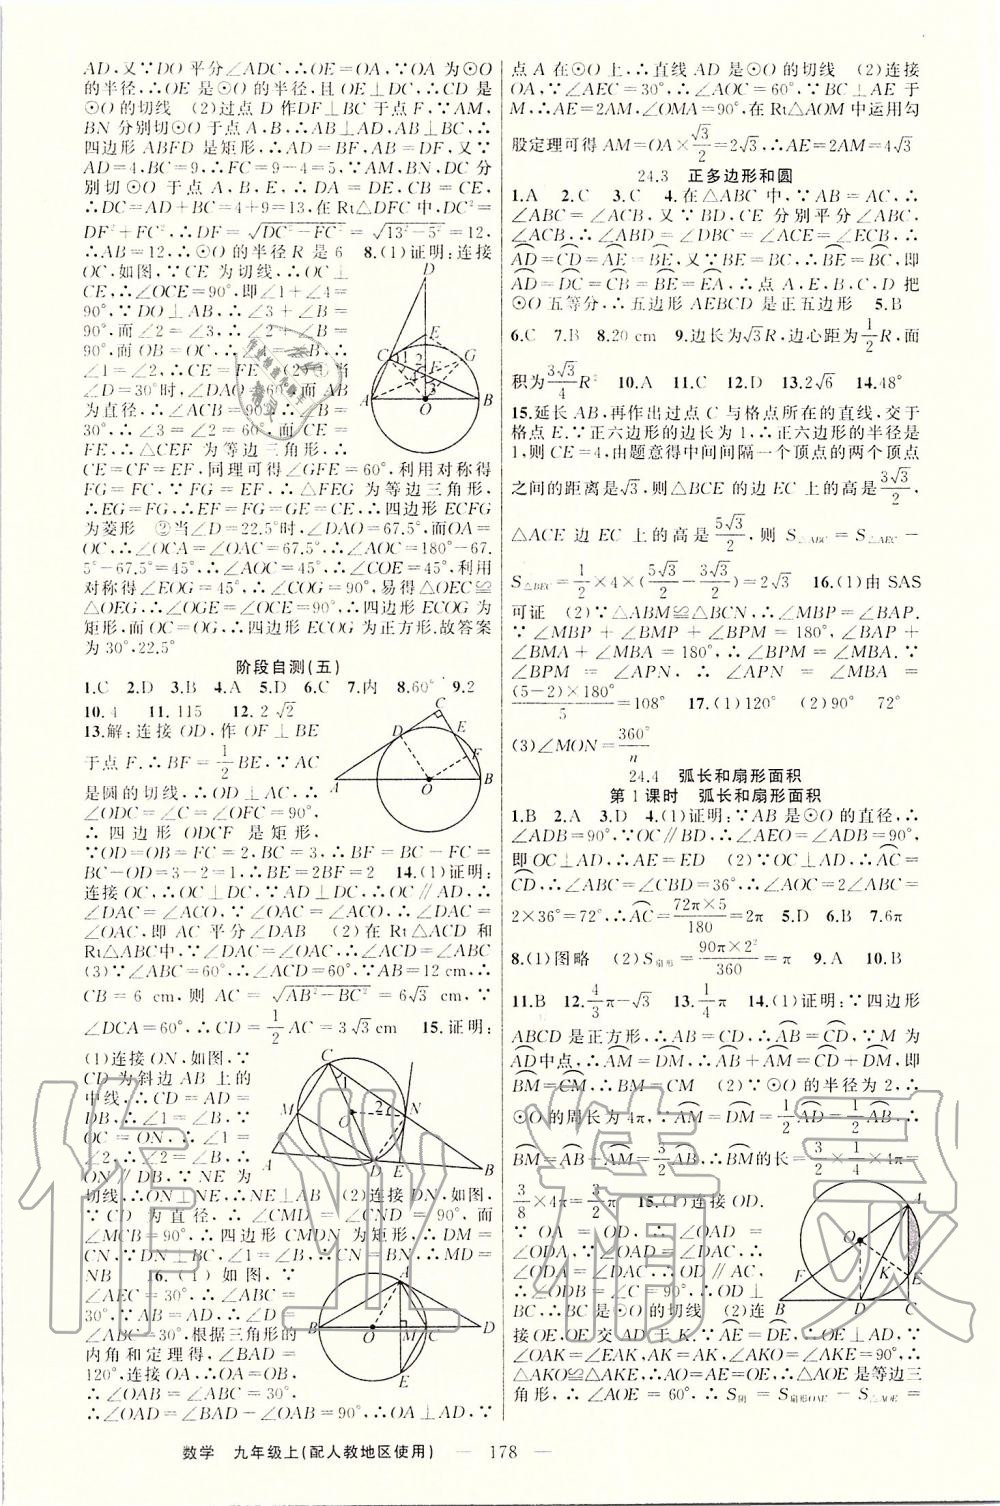 AD,又∵DO平分∠ADC,∴OE=OA,∵OA为⊙O
的半径,∴OE是⊙O的半径,且OE⊥DC,∴CD是
⊙O的切线 (2)过点D作DF⊥BC于点F,∵AM,
BN分别切⊙O于点A,B,∴AB⊥AD,AB⊥BC,∴
四边形ABFD是矩形,∴AD=BF,AB=DF,又∵
AD=4,BC=9,∴FC=9-4=5,∵AM,BN,DC分
别切⊙O于点A,B,E,∴DA=DE,CB=CE,
∴DC=AD+BC=4+9=13,在Rt△DFC中,DC²=
DF²+FC²,∴DF=√(DC²-FC²)=√(13²-5²)=12,
∴AB=12,∴⊙O的半径R是6 8.(1)证明:连接
OC,如图,∵CE为切线,∴OC⊥
CE,∴∠OCE=90°,即∠1+∠4=
90°,∵DO⊥AB,∴∠3+∠B=
90°,而∠2=∠3,∴∠2+∠B=
90°,而OB=OC,∴∠4=∠B,∴
∠1=∠2,∴CE=FE (2)①当
∠D=30°时,∠DAO=60°,而AB
为直径,∴∠ACB=90°,∴∠B=
30°,∴∠3=∠2=60°,而CE=
FE,∴△CEF为等边三角形,∴
CE=CF=EF,同理可得∠GFE=60°,利用对称得
FG=FC,∵FG=EF,∴△FEG为等边三角形,
∴EG=FG,∴EF=FG=GE=CE,∴四边形ECFG
为菱形 ②当∠D=22.5°时,∠DAO=67.5°,而OA=
OC,∴∠OCA=∠OAC=67.5°,∴∠AOC=180°-67.
5°-67.5°=45°,∴∠AOC=45°,∴∠COE=45°,利用
对称得∠EOG=45°,∴∠COG=90°,易得△OEC≌
△OEG,∴∠OGE=∠OCE=90°,∴四边形ECOG为
矩形,而OC=OG,∴四边形ECOG为正方形.故答案
为30°,22.5°
阶段自测(五)
1.C 2.D 3.B 4.A 5.D 6.C 7.内 8.60° 9.2
10.4 11.115 12.2√2
13.解:连接OD,作OF⊥BE
于点F.∴BF=1/2BE,∵AC
是圆的切线,∴OD⊥AC,∴
∠ODC=∠C=∠OFC=90°,
∴四边形ODCF是矩形,
∵OD=OB=FC=2,BC=3,∴BF=BC-FC=
BC-OD=3-2=1,∴BE=2BF=2 14.(1)证明:
连接OC,∴OC⊥DC,∵AD⊥DC,∴OC∥AD,∴
∠DAC=∠ACO,∵∠OAC=∠OCA,∴∠DAC=
∠OAC,即AC平分∠DAB (2)在Rt△ACD和
Rt△ABC中,∵∠DAC=∠OAC,∴∠ACD=∠ABC
(3)∵∠ABC=60°,∴∠ACD=60°,∵AB=12 cm,∴
CB=6 cm,则AC=√(AB²-BC²)=6√3 cm,∵
∠DCA=60°,∴CD=1/2AC=3√3 cm 15.证明:
(1)连接ON,如图,∵
CD为斜边AB上的
中线,∴CD=AD=
DB,∴∠1=∠B,∵
OC=ON,∴∠1=
∠2,∴∠2=∠B,∴
ON∥DB,∵NE为
切线,∴ON⊥NE,∴NE⊥AB (2)连接DN,如图,
∵CD为直径,∴∠CMD=∠CND=90°,而
∠MCB=90°,∴四边形CMDN为矩形,∴DM=
CN,∵DN⊥BC,∠1=∠B,∴CN=BN,∴MD=
NB 16.(1)如图,∵
∠AEC=30°,∴∠ABC=
30°,∵AB=AD,∴∠D=
∠ABC=30°,根据三角形的
内角和定理得,∠BAD=
120°,连接OA,∴OA=OB,
∴∠OAB=∠ABC=30°,
∴∠OAD=∠BAD-∠OAB=90°,∴OA⊥AD,∵
点A在⊙O上,∴直线AD是⊙O的切线 (2)连接
OA,∵∠AEC=30°,∴∠AOC=60°,∵BC⊥AE于
M,∴AE=2AM,∠OMA=90°,在Rt△AOM中运用勾
股定理可得AM=OA×√3/2=2√3,∴AE=2AM=4√3
24.3 正多边形和圆
1.A 2.C 3.C 4.在△ABC中,∵AB=AC,∴
∠ABC=∠ACB,又∵BD,CE分别平分∠ABC,
∠ACB,∴∠ABD=∠DBC=∠ACE=∠ECB,∴
AD=CD=AE=BE,又∵BE=BC,∴BE=BC,即
AD=DC=CB=BE=EA,∴点A,E,B,C,D把
⊙O五等分,∴五边形AEBCD是正五边形 5.B
6.C 7.B 8.20 cm 9.边长为√3R,边心距为1/2R,面
积为3√3/4R² 10.A 11.C 12.D 13.2√6 14.48°
15.延长AB,再作出过点C与格点所在的直线,交于
格点E.∵正六边形的边长为1,∴正六边形的半径是
1,则CE=4,由题意得中间间隔一个顶点的两个顶点
之间的距离是√3,则△BCE的边EC上的高是3√3/2,
△ACE边EC上的高是5√3/2,则S△ABC=S△AEC-
S△BEC=1/2×4×(5√3/2-3√3/2)=2√3 16.(1)由SAS
可证 (2)∵△ABM≌△BCN,∴∠MBP=∠BAP.
∵∠MBP+∠BMP+∠BPM=180°,∠BAP+
∠BMA+∠MBA=180°.∴∠BPM=∠MBA.∵
∠BPM=∠APN,∴∠APN=∠MBA=
(5-2)×180°/5=108° 17.(1)120° (2)90° 72°
(3)∠MON=360°/n
24.4 弧长和扇形面积
第1课时 弧长和扇形面积
1.B 2.A 3.D 4.(1)证明:∵AB是⊙O的直径,∴
∠ADB=90°,∵OC∥BD,∴∠AEO=∠ADB=90°,
即OC⊥AD,∴AE=ED (2)∵OC⊥AD,∴AC=
CD,∴∠ABC=∠CBD=36°,∴∠AOC=2∠ABC=
2×36°=72°,∴AC=72π×5/180=2π 5.D 6.B 7.6π
8.(1)图略 (2)S扇形=90π×2²/360=π 9.A 10.B
11.B 12.4/3π-√3 13.1/4π 14.(1)证明:∵四边形
ABCD是正方形,∴AB=CD,∴AB=CD,∵M为
AD中点,∴AM=DM,∴AB+AM=CD+DM,即
BM=CM,∴BM=CM (2)∵⊙O的半径为2,∴
⊙O的周长为4π,∵AM=DM=1/2AD=1/2AB,∴
BM=AB+AM=3/2AB,∴BM的长=3/2×1/4×4π=
3/8×4π=3/2π 15.(1)连接OD.
∵OA=OD,∴∠OAD=
∠ODA,∵∠OAD=∠DAC,∴
∠ODA=∠DAC,∴OD∥AC,
∴∠ODB=∠C=90°,∴OD⊥
BC,∴BC是⊙O的切线 (2)连
接OE,OE交AD于K.∵AE=DE,∴OE⊥AD.∵
∠OAK=∠EAK,AK=AK,∠AKO=∠AKE=90°,∴
△AKO≌△AKE,∴AO=AE=OE,∴△AOE是等边三
角形,∴∠AOE=60°,∴S阴=S扇形OAE-S△AOE=
数学 九年级上(配人教地区使用) — 178 —
作业精灵